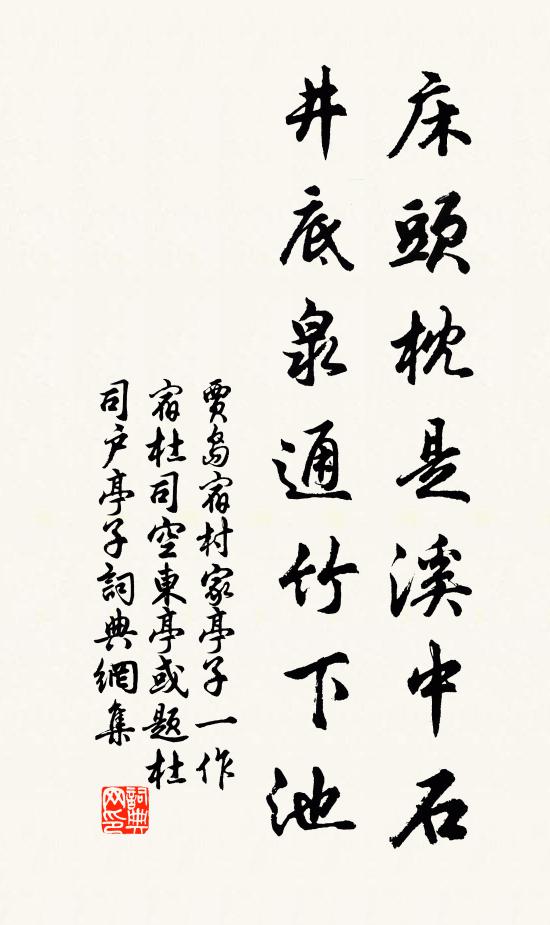 床頭枕是溪中石
井底泉通竹下池
賈島宿村家亭子一作
宿杜司空東亭或題杜
司戶亭子詞典網集
詞典
网印